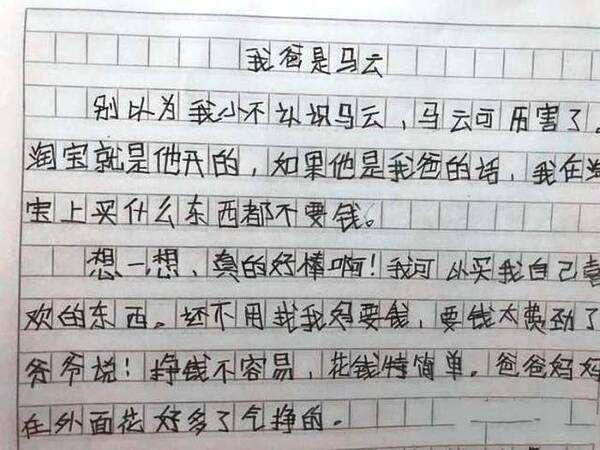 我爸是马云
别以为我小不认识马云，马云可历害了。
淘宝就是他开的，如果他是我爸的话，我在淘
宝上买什么东西都不要钱。
想一想，真的好棒啊！我可以买我自己喜
欢的东西。还不用找我妈要钱，要钱太费劲了
爷爷说！挣钱不容易，花钱特简单。爸爸妈妈
在外面花好多了气挣的。